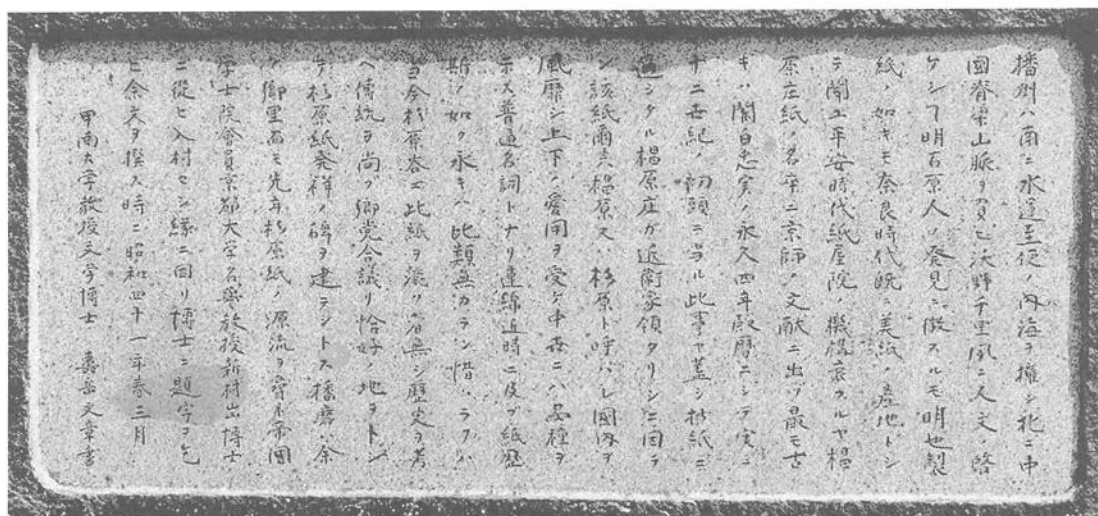 播州ハ南ニ水運至便ノ内海ヲ擁シ北ニ中
國脊梁山脈ヲ負ヒ沃野千里夙ニ人文ノ啓
ケシヿ明石原人ノ発見ニ徴スルモ明也製
紙ノ如キモ奈良時代既ニ美紙ノ産地トシ
テ聞エ平安時代紙屋院ノ機構衰フルヤ椙
原庄紙ノ名卒ニ京師ノ文献ニ出ヅ最モ古
キハ関白忠実ノ永久四年殿暦ニシテ実ニ
十二世紀ノ初頭ニ当ル此事ヤ蓋シ抄紙ニ
適シタル椙原庄ガ近衛家領タリシニ因ラ
ン該紙爾来椙原又ハ杉原ト呼バレ國内ヲ
風靡シ上下ノ愛用ヲ受ケ中世ニハ一種ヲ
示ス普通名詞トナリ連綿近時ニ及ブ紙歴
斯ノ如ク永キハ比類無カラン惜ムラクハ
当今杉原谷ニ此紙ヲ漉ク者無シ歴史ヲ考
ヘ傳統ヲ尚ブ郷党合議リ恰好ノ地ヲトシ
テ杉原紙発祥ノ碑ヲ建テントス播磨ハ余
ガ郷里而モ先年杉原紙ノ源流ヲ尋ネ帝国
学士院會員京都大学名誉教授新村出博士
ニ從ヒ入村セシ縁ニ因リ博士ニ題字ヲ乞
ヒ余文ヲ撰ス時ニ昭和四十一年春三月
甲南大学教授文学博士 壽岳文章書